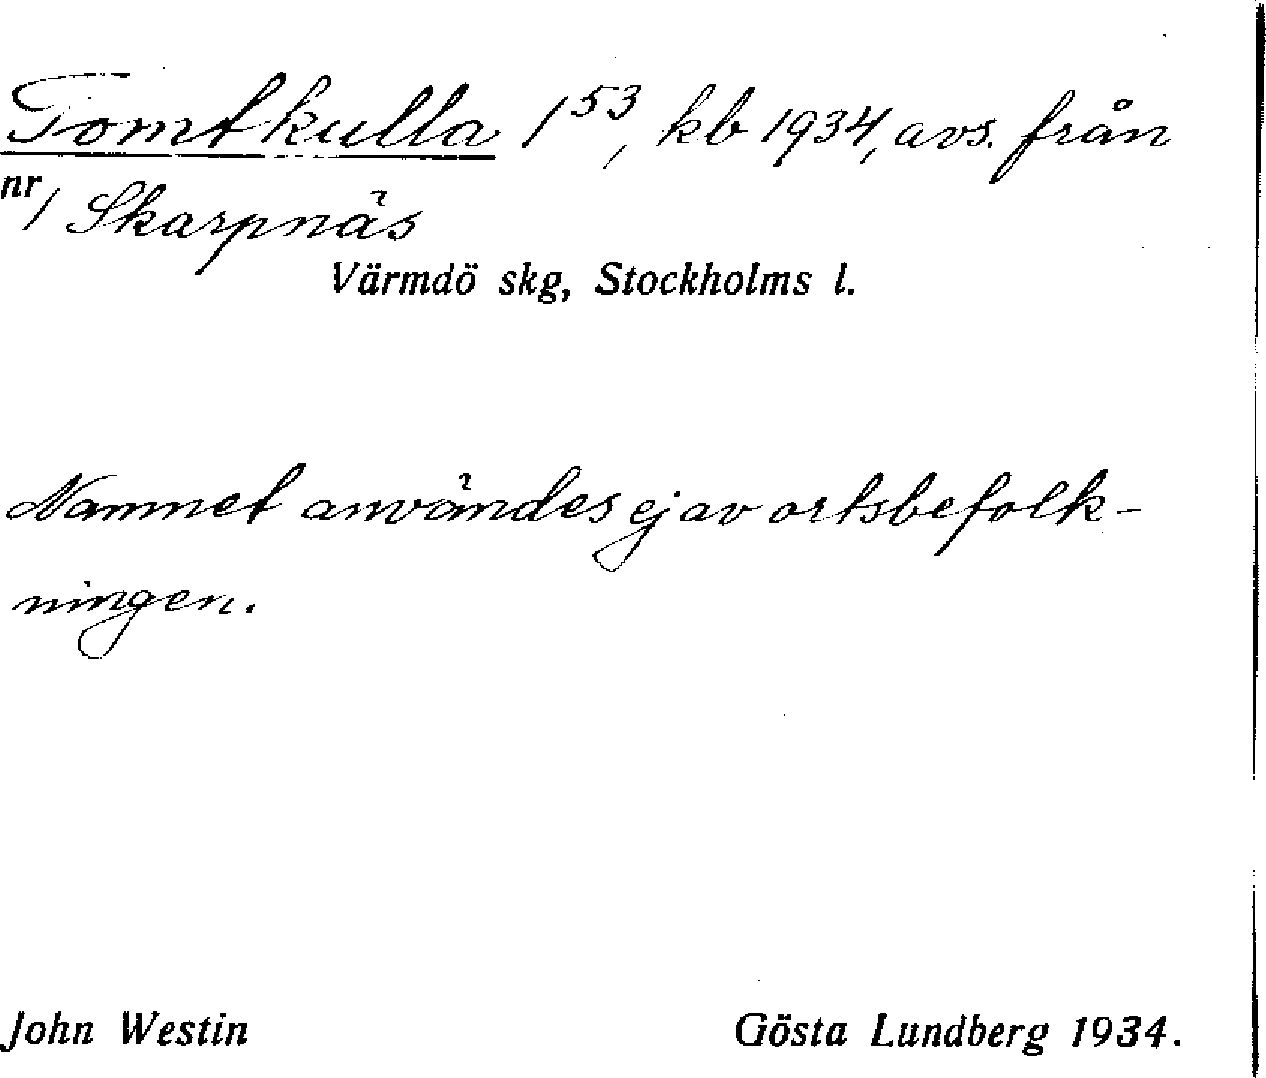 Tomtkulla 1⁵³, kb 1934, avs. från
nr 1 Skarpnäs
Värmdö skg, Stockholms l.
Namnet användes ej av ortsbefolk-
ningen.
John Westin Gösta Lundberg 1934.